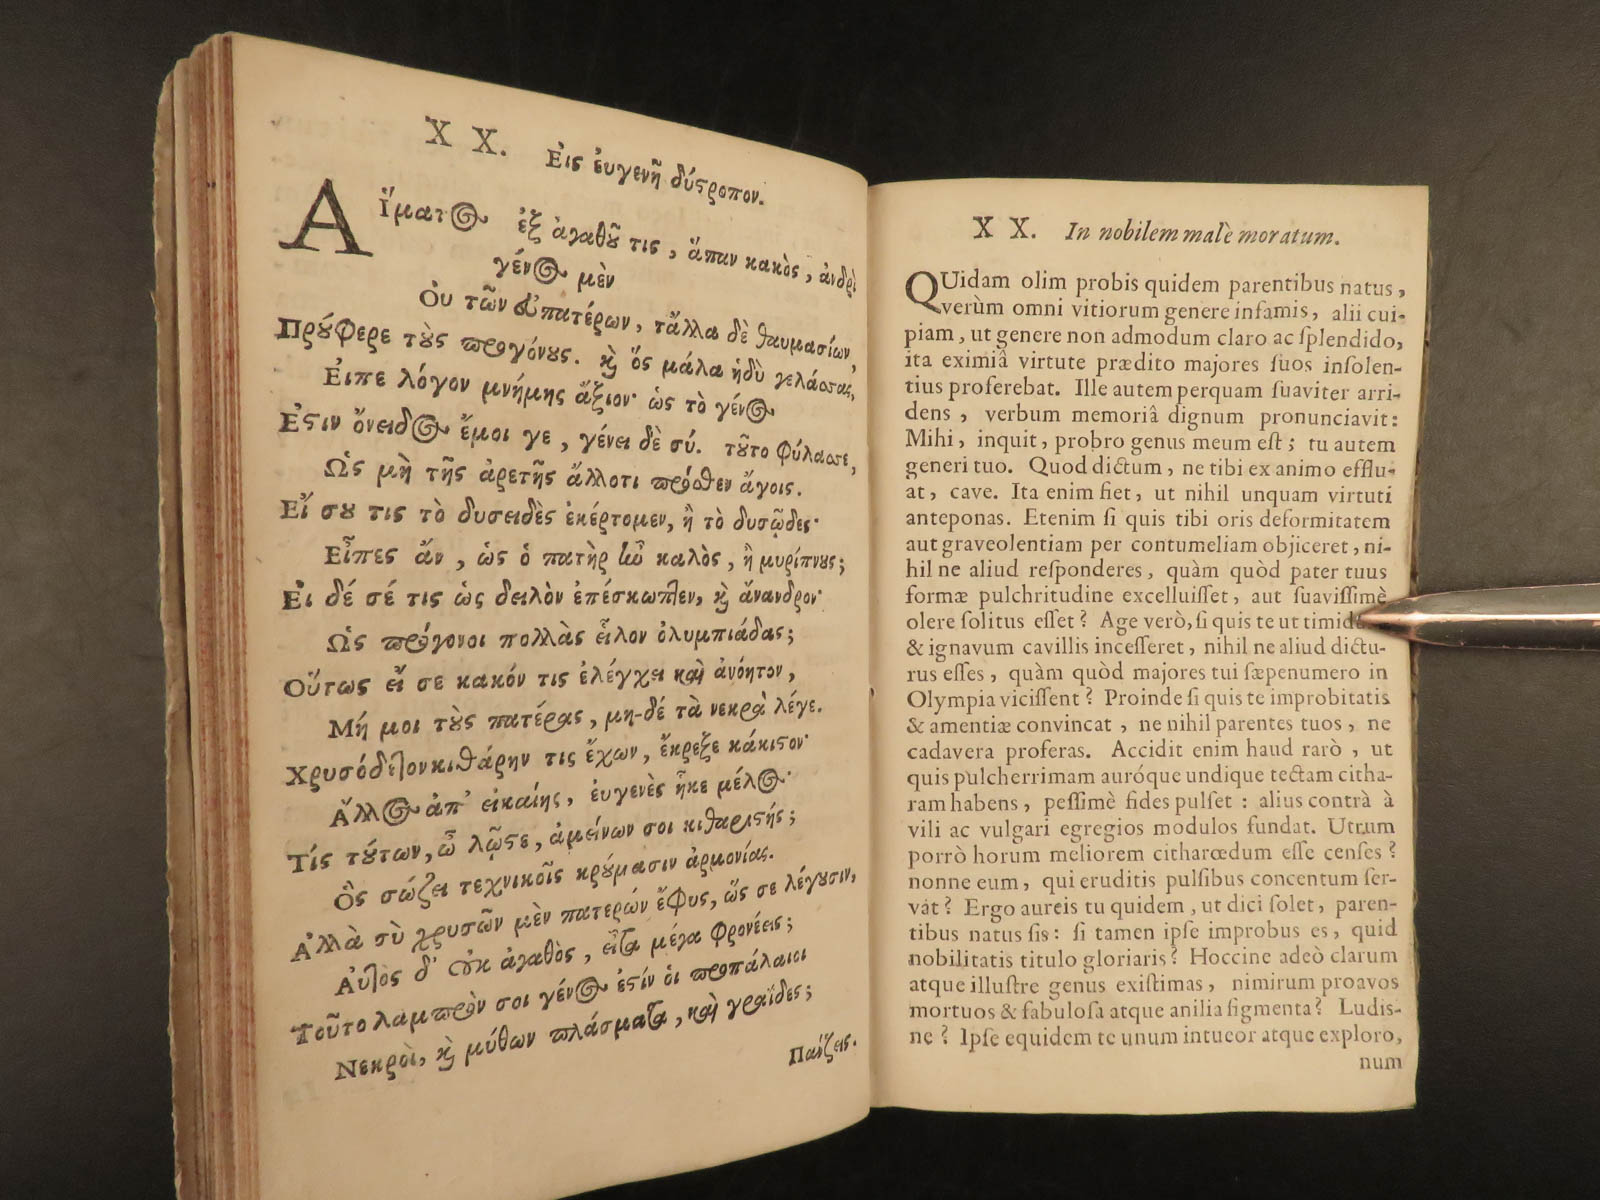 XX. Ἐις ἐυγενῆ δύςροπον.
Αἵματος ἐξ ἀγαθοῦ τις, ἅπαν κακὸς, ἀνδρὶ
γένος μὲν
Ὀυ τῶν εὐπατέρων, τἄλλα δὲ θαυμασίων,
Πρόυφερε τοὺς προγόνους. καὶ ὅς μάλα ἡδὺ γελάσσας,
Ἐιπε λόγον μνήμης ἄξιον· ὡς τὸ γένος
Ἐστιν ὄνειδος ἔμοι γε, γένει δὲ σύ. τοῦτο φύλασσε,
Ὡς μὴ τῆς ἀρετῆς ἄλλοτι πρόσθεν ἄγοις.
Εἴ σου τις τὸ δυσειδὲς ἐκέρτομεν, ἢ τὸ δυσῶδες·
Εἶπες ἄν, ὡς ὁ πατὴρ ἦν καλὸς, ἢ μυρίπνους;
Ἐι δέ σέ τις ὡς δειλὸν ἐπέσκωπτεν, καὶ ἄνανδρον·
Ὡς πρόγονοι πολλὰς εἷλον ὀλυμπιάδας;
Οὕτως εἴ σε κακόν τις ἐλέγχει καὶ ἀνόητον,
Μή μοι τοὺς πατέρας, μη-δέ τὰ νεκρὰ λέγε.
Χρυσόδετον κιθάρην τις ἔχων, ἔκρεξε κάκιστον·
Ἄλλος ἀπ' εἰκαίης, ἐυγενὲς ἧκε μέλος·
Τίς τούτων, ὦ λῷστε, ἀμείνων σοι κιθαριστής;
Ὃς σώζει τεχνικοῖς κρούμασιν ἁρμονίας.
Ἀλλὰ σὺ χρυσῶν μὲν πατερών ἔφυς, ὥς σε λέγουσιν,
Αὐτὸς δ' οὐκ ἀγαθὸς, εἶτα μέγα φρονέεις;
Τοῦτο λαμπρὸν σοι γένος ἐστίν οἱ προπάλαιοι
Νεκροὶ, καὶ μύθων πλάσματα, καὶ γραΐδες;
Παίζεις.
XX. In nobilem malè moratum.
QUidam olim probis quidem parentibus natus,
verùm omni vitiorum genere infamis, alii cui-
piam, ut genere non admodum claro ac splendido,
ita eximiâ virtute prædito majores suos insolen-
tius proferebat. Ille autem perquam suaviter arri-
dens, verbum memoriâ dignum pronunciavit:
Mihi, inquit, probro genus meum est; tu autem
generi tuo. Quod dictum, ne tibi ex animo efflu-
at, cave. Ita enim fiet, ut nihil unquam virtuti
anteponas. Etenim si quis tibi oris deformitatem
aut graveolentiam per contumeliam objiceret, ni-
hil ne aliud responderes, quàm quòd pater tuus
formæ pulchritudine excelluisset, aut suavissimè
olere solitus esset? Age verò, si quis te ut timid
& ignavum cavillis incesseret, nihil ne aliud dictu-
rus esses, quàm quòd majores tui sæpenumero in
Olympia vicissent? Proinde si quis te improbitatis
& amentiæ convincat, ne nihil parentes tuos, ne
cadavera proferas. Accidit enim haud rarò, ut
quis pulcherrimam auróque undique tectam citha-
ram habens, pessimè fides pulset: alius contrà à
vili ac vulgari egregios modulos fundat. Utrum
porrò horum meliorem citharœdum esse censes?
nonne eum, qui eruditis pulsibus concentum ser-
vat? Ergo aureis tu quidem, ut dici solet, paren-
tibus natus sis: si tamen ipse improbus es, quid
nobilitatis titulo gloriaris? Hoccine adeò clarum
atque illustre genus existimas, nimirum proavos
mortuos & fabulosa atque anilia figmenta? Ludis-
ne? Ipse equidem te unum intueor atque exploro,
num